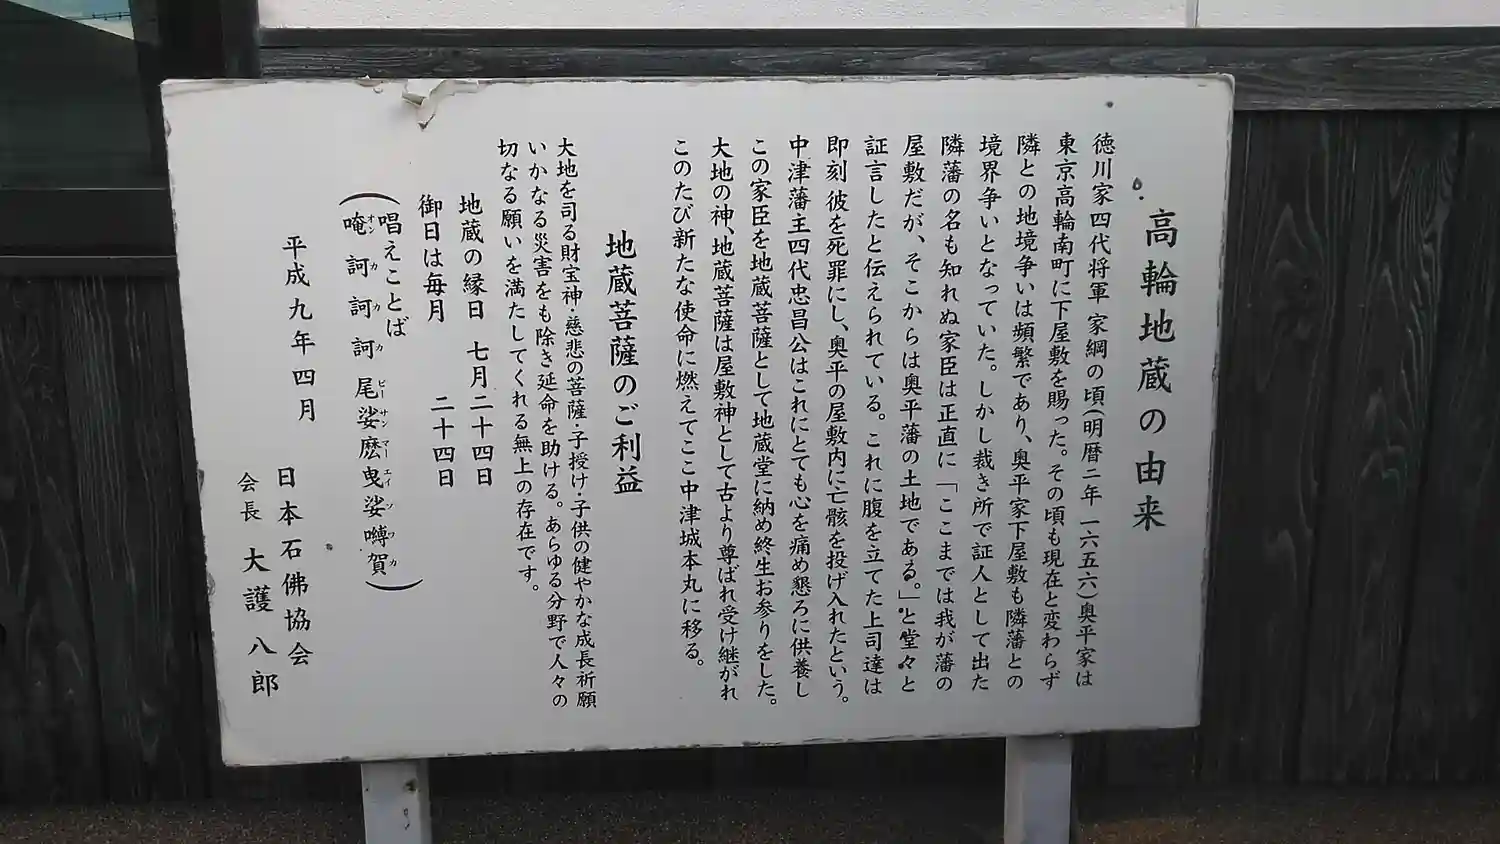 高輪地蔵の由来
徳川家四代将軍 家綱の頃(明暦二年 一六五六)奥平家は
東京高輪南町に下屋敷を賜った。その頃も現在と変わらず
隣との地境争いは頻繁であり、奥平家下屋敷も隣藩との
境界争いとなっていた。しかし裁き所で証人として出た
隣藩の名も知れぬ家臣は正直に「ここまでは我が藩の
屋敷だが、そこからは奥平藩の土地である。」と堂々と
証言したと伝えられている。これに腹を立てた上司達は
即刻 彼を死罪にし、奥平の屋敷内に亡骸を投げ入れたという。
中津藩主四代忠昌公はこれにとても心を痛め懇ろに供養し
この家臣を地蔵菩薩として地蔵堂に納め終生お参りをした。
大地の神、地蔵菩薩は屋敷神として古より尊ばれ受け継がれ
このたび新たな使命に燃えてここ中津城本丸に移る。
地蔵菩薩のご利益
大地を司る財宝神・慈悲の菩薩・子授け・子供の健やかな成長祈願
いかなる災害をも除き延命を助ける。あらゆる分野で人々の
切なる願いを満たしてくれる無上の存在です。
地蔵の縁日 七月二十四日
御日は毎月 二十四日
(唱えことば
唵訶訶訶尾娑麽曳娑嚩賀)
オンカカカビーサンマーエイソワカ
平成九年四月
日本石佛協会
会長 大護八郎